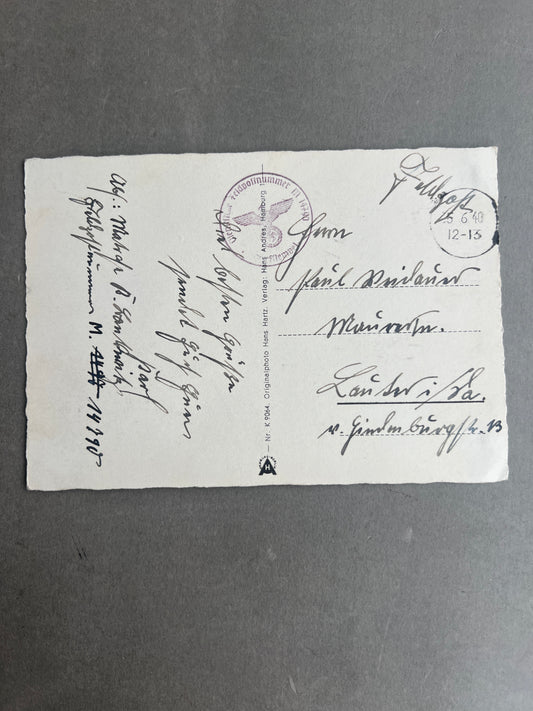 Feldpost
6.6.40
12-13
Feldpostnummer M 14190
Herrn
Paul Weidauer
Maurermstr.
Lauter i/Sa.
v. Hindenburgstr. 13
besten Grüße
sendet Euch Euer
Karl
Abs.: Matr.
Feldpostnummer M. 14190
— Nr. K 9064. Originalphoto Hans Hartz, Verlag: Hans Andres, Hamburg